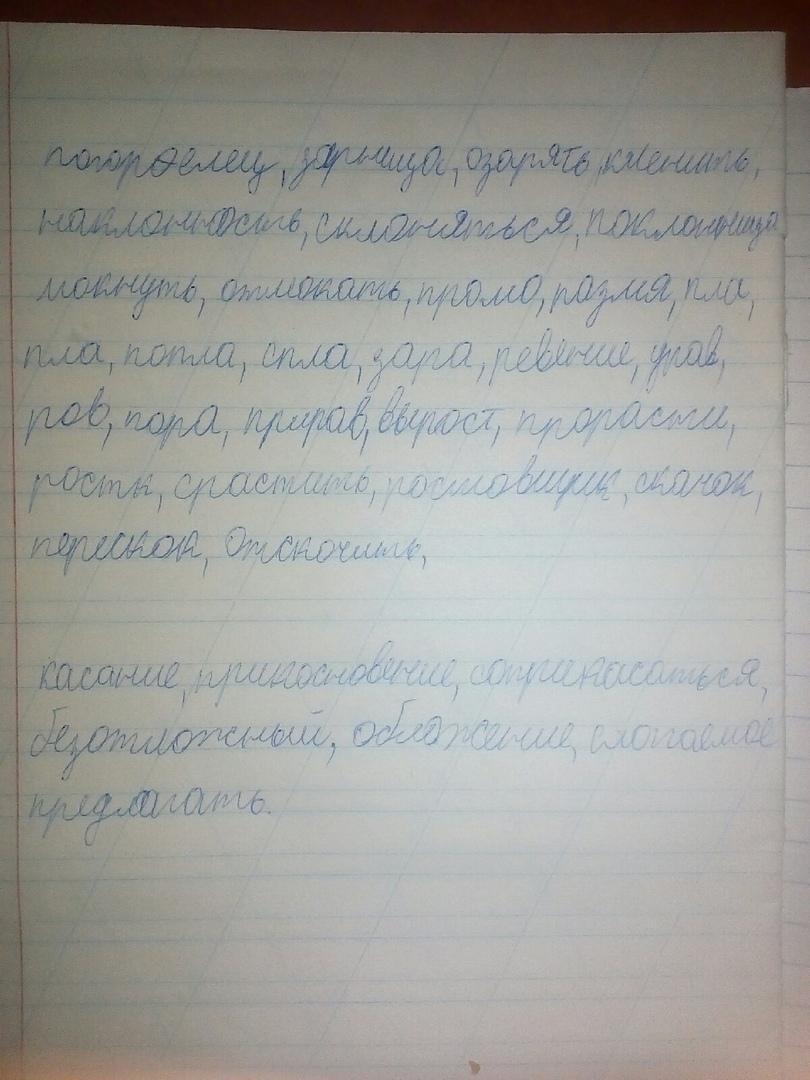 погорелец, зарница, озарять, кленить,
наклонность, склоняться, поклонница
мокнуть, отмокать, промо, размя, пла,
пла, попла, спла, зара, ревение, урав,
ров, пора, прирав, вырост, прорасти,
ростк, срастить, ростовщик, скачок,
перескок, отскочить,
касание, прикосновение, соприкасаться,
безотложный, обложение, слагаемое
предлагать.